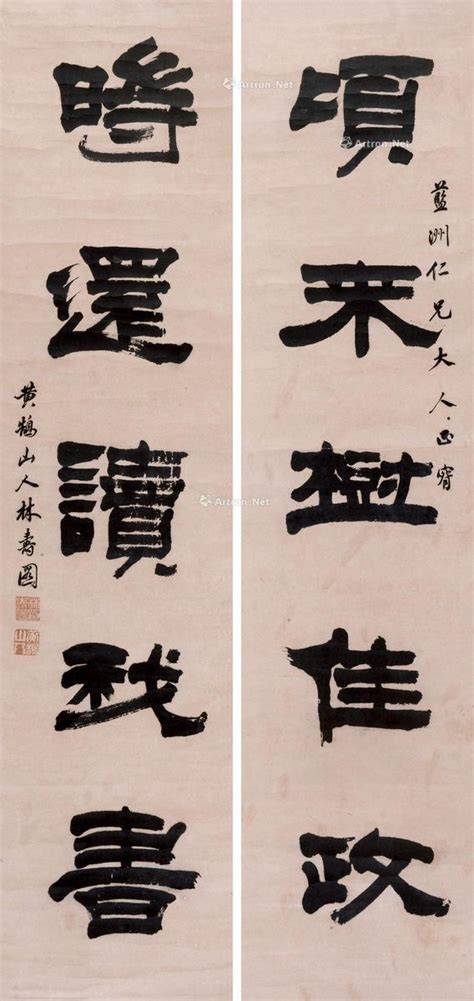 藍洲仁兄大人正
頃来樹佳政
時還讀我書
黄鵠山人林壽圖
Artron.Net
Artron.Net
Artron.Net
Artron.Net